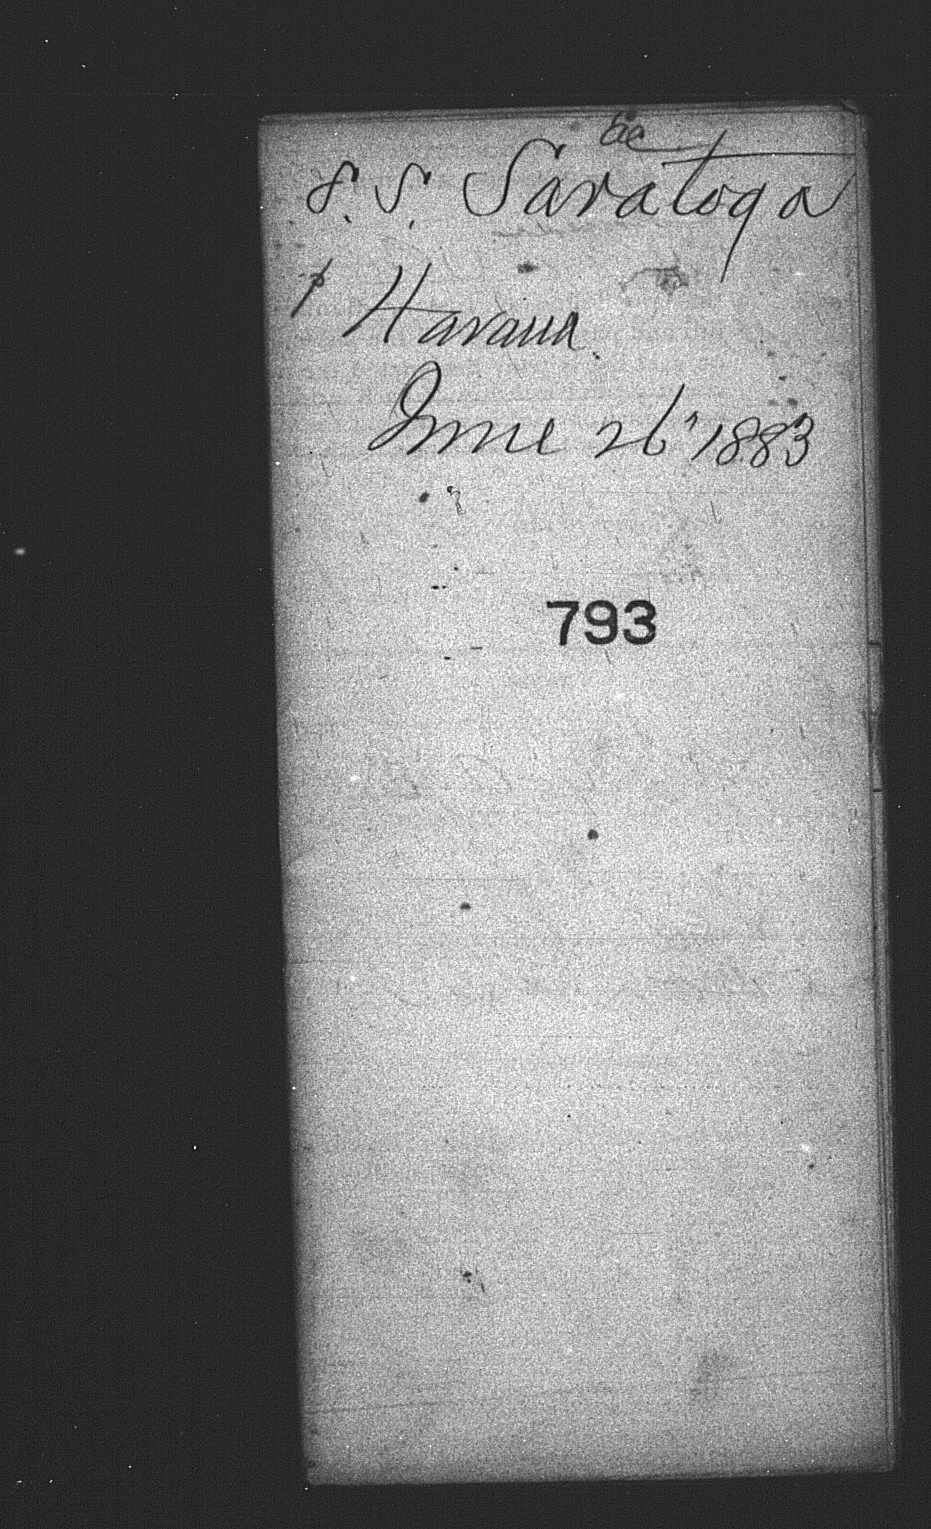 S. S. Saratoga
Havana.
June 26" 1883
793